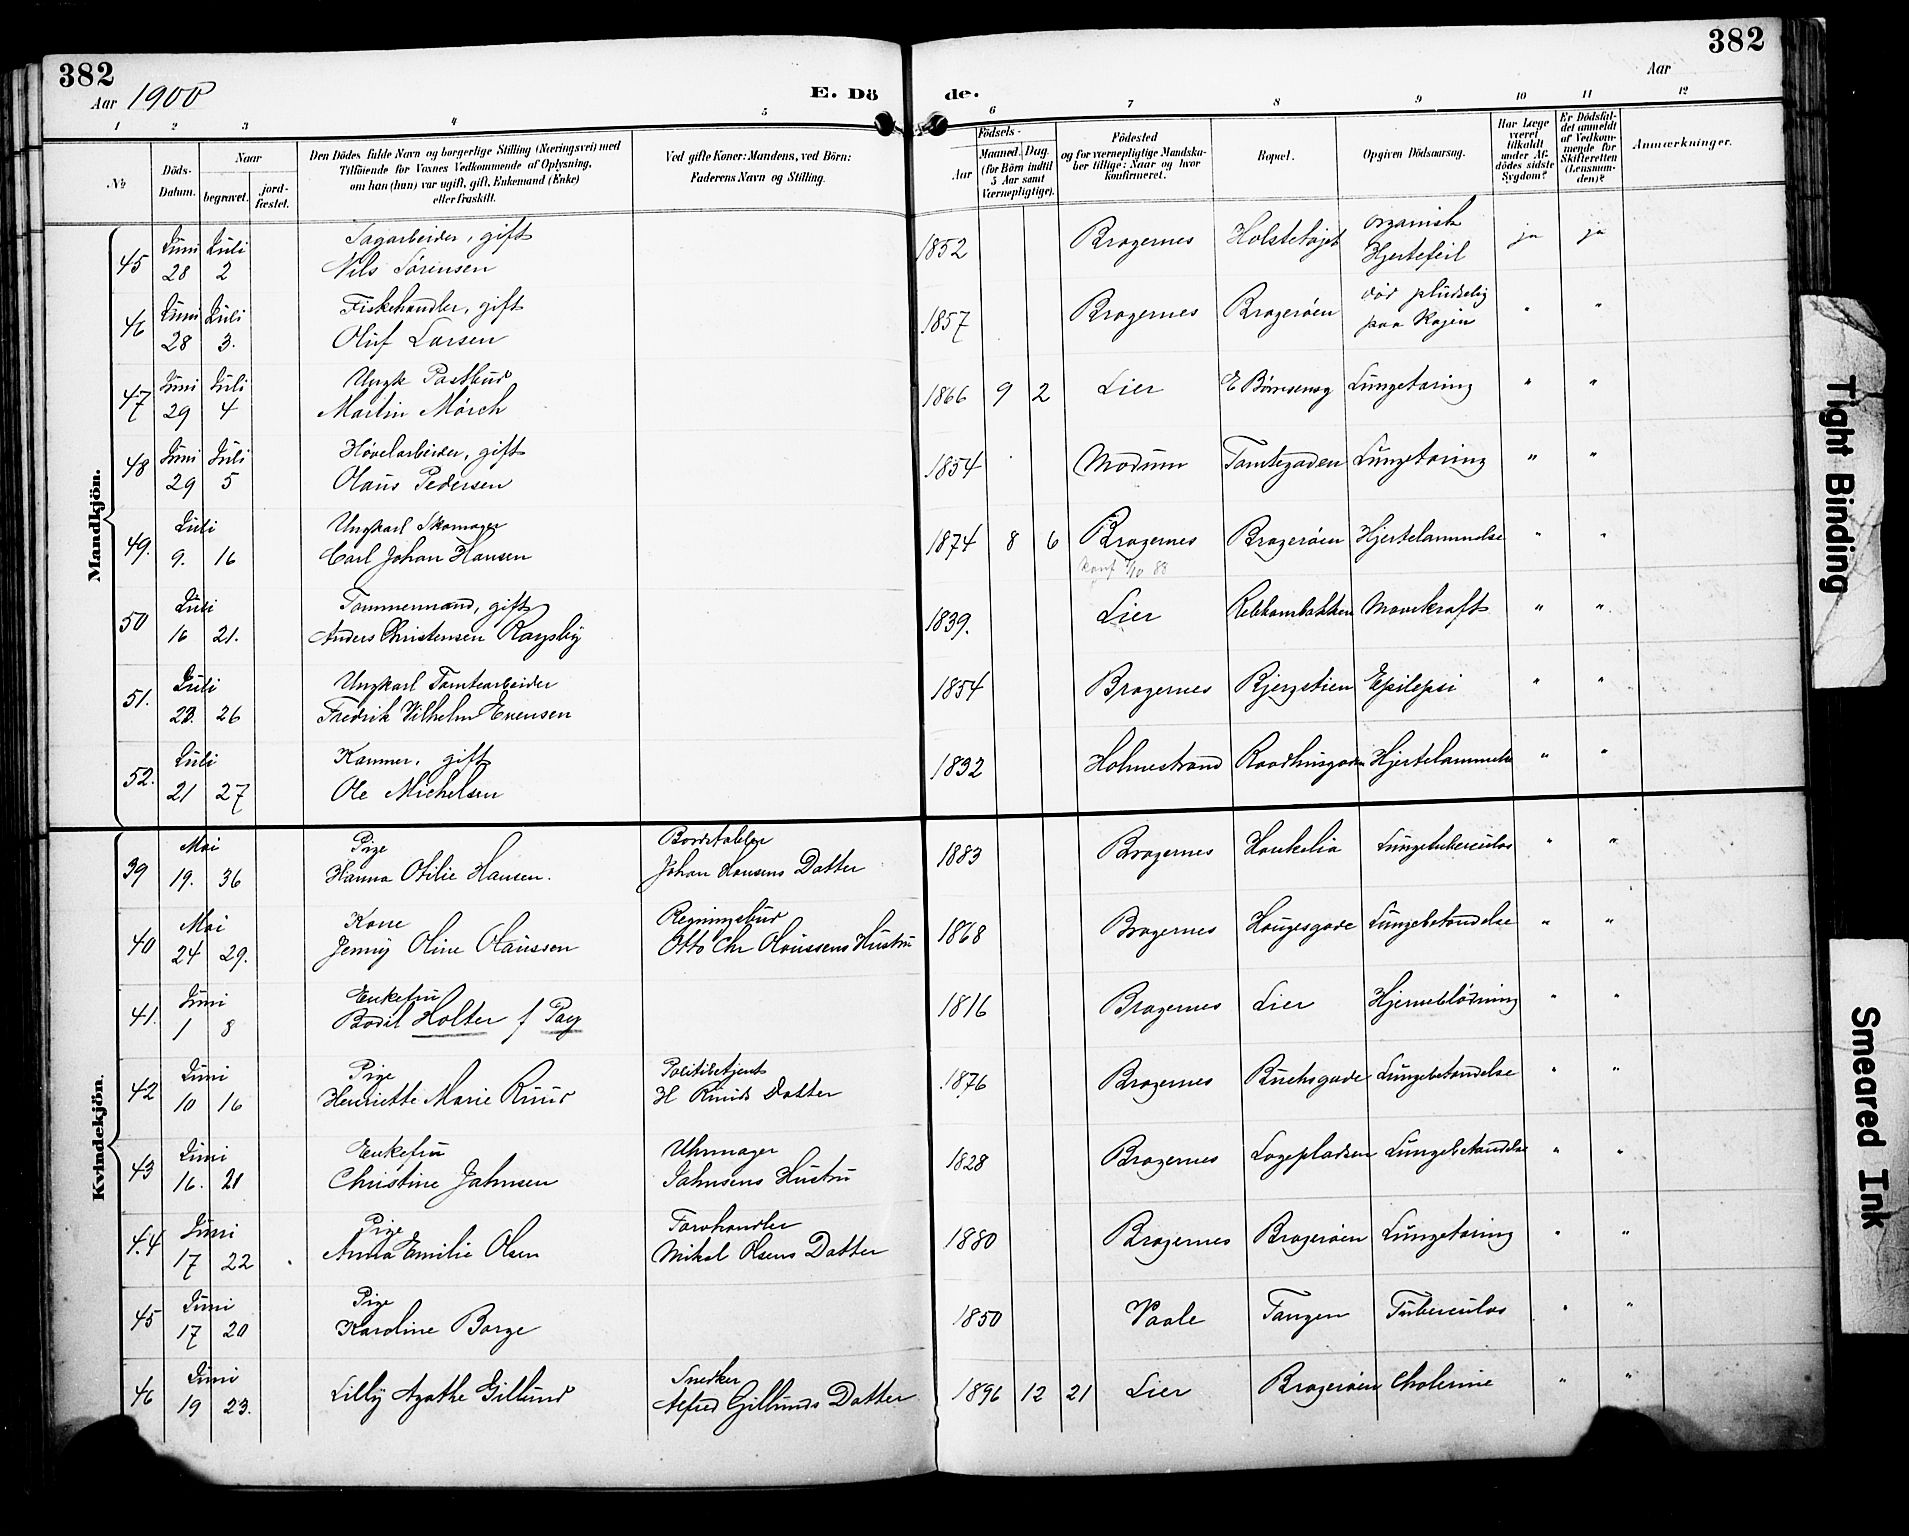 382
382
Aar 1900
E. Dö de.
Aar
1 2 3 4 5 6 7 8 9 10 11 12
№
Döds-Datum.
Naar
begravet.
jord-fæstet.
Den Dödes fulde Navn og borgerlige Stilling (Næringsvei) med
Tilföiende for Voxnes Vedkommende af Oplysning,
om han (hun) var ugift, gift, Enkemand (Enke)
eller fraskilt.
Ved gifte Koner: Mandens, ved Börn:
Faderens Navn og Stilling.
Födsels-
Aar
Maaned. Dag
(for Börn indtil
5 Aar samt
Værnepligtige).
Födested
og for værnepligtige Mandska-
ber tillige: Naar og hvor
konfirmeret.
Bopæl.
Opgiven Dödsaarsag.
Har Læge
været
tilkaldt
under Af-
dödes sidste
Sygdom?
Er Dödsfal-
det anmeldt
af Vedkom-
mende for
Skifteretten
(Lensman-
den)?
Anmærkninger.
Mandkjön.
45 Juni 28 Juli 2 Sagarbeider, gift
Nils Sørensen 1852 Bragernes Holstetøjet organisk
Hjertefeil ja ja
46 Juni 28 Juli 3. Fiskehandler, gift
Oluf Larsen 1857 Bragernes Bragerøen død pludselig
paa Kajen " "
47 Juni 29 Juli 4 Ungk Postbud
Martin Mörch 1866 9 2 Lier Lungetæring " "
48 Juni 29 Juli 5 Høvelarbeider, gift
Olaus Pedersen 1854 Modum Tomtegaden Lungetæring " "
49. Juli 9. 16 Ungkarl Skomager
Carl Johan Hansen 1874 8 6 Bragernes Bragerøen Hjertelammelse " "
konf 7/10 88
50 Juli 16 21. Tømmermand, gift
Anders Christensen 1839. Lier Mavekræft " "
51. Juli 23. 26 Ungkarl Tomtearbeider
Fredrik Vilhelm Evensen 1854 Bragernes Bjergstien Epilepsi " "
52. Juli 21 27 gift
Ole Michelsen 1832 Holmestrand Raadhusgaden Hjertelammelse " "
Kvindekjön.
39 Mai 19. 36 Pige
Hanna Otilie Hansen. Bordstabler
Johan Hansens Datter 1883 Bragernes Haukelia Lungetuberculos " "
40 Mai 24 29. Kone
Jenny Oline Olaussen Regningsbud
Otto Chr Olaussens Hustru 1868 Bragernes Haugesgade Lungebetændelse " "
41. Juni 1 8 Enkefru
Bodil Holter f Pay 1816 Bragernes Lier Hjerneblødning " "
42 Juni 10 16 Pige
Henriette Marie Ruud Politibetjent
H Ruuds Datter 1876 Bragernes Buchsgade Lungebetændelse " "
43 Juni 16. 21 Enkefru
Christine Jahnsen Uhrmager
Jahnsens Hustru 1828 Bragernes Logepladsen Lungebetændelse " "
44 Juni 17 22 Pige
Anna Emilie Olsen Farvhandler
Mikal Olsens Datter 1880 Bragernes Bragerøen Lungetæring " "
45 Juni 17 20 Pige
Karoline Borge 1850 Vaale Tangen Tuberculos " "
46 Juni 19 23. Lilly Agathe Gillund Snedker
Alfred Gillunds Datter 1896 12 21 Lier Bragerøen Cholerine " "
Tight Binding
Smeared Ink